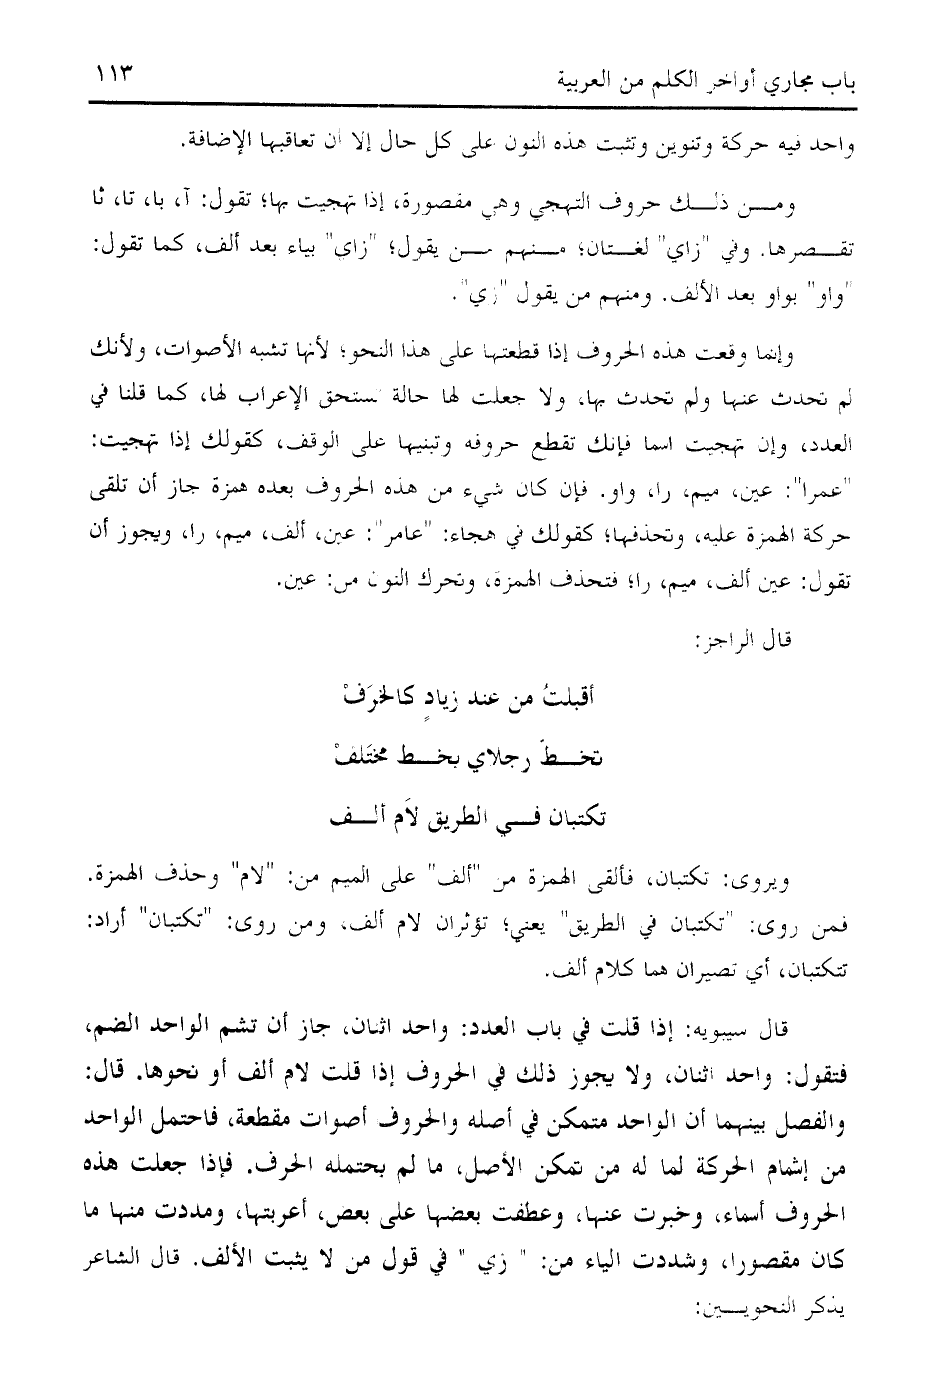 باب مجاري أواخر الكلم من العربية ١١٣
واحد فيه حركة وتنوين وتثبت هذه النون على كل حال إلا أن تعاقبها الإضافة.
ومن ذلك حروف التهجي وهي مقصورة، إذا تهجيت بها؛ تقول: آ، با، تا، ثا
تقصرها. وفي "زاي" لغتان؛ منهم من يقول؛ "زاي" بياء بعد ألف، كما تقول:
"واو" بواو بعد الألف. ومنهم من يقول "زي".
وإنما وقعت هذه الحروف إذا قطعتها على هذا النحو؛ لأنها تشبه الأصوات، ولأنك
لم تحدث عنها ولم تحدث بها، ولا جعلت لها حالة تستحق الإعراب لها، كما قلنا في
العدد، وإن تهجيت اسما فإنك تقطع حروفه وتبنيها على الوقف، كقولك إذا تهجيت:
"عمرا": عين، ميم، را، واو. فإن كان شيء من هذه الحروف بعده همزة جاز أن تلقى
حركة الهمزة عليه، وتحذفها؛ كقولك في هجاء: "عامر": عين، ألف، ميم، را، ويجوز أن
تقول: عين ألف، ميم، را؛ فتحذف الهمزة، وتحرك النون من: عين.
قال الراجز:
أقبلتُ من عند زيادٍ كالخرَفْ
تخطّ رجلاي بخط مختَلفْ
تكتبان في الطريق لاَم ألف
ويروى: تكتبان، فألقى الهمزة من "ألف" على الميم من: "لام" وحذف الهمزة.
فمن روى: "تكتبان في الطريق" يعني؛ تؤثران لام ألف، ومن روى: "تكتبان" أراد:
تتكتبان، أي تصيران هما كلام ألف.
قال سيبويه: إذا قلت في باب العدد: واحد اثنان، جاز أن تشم الواحد الضم،
فتقول: واحد اثنان، ولا يجوز ذلك في الحروف إذا قلت لام ألف أو نحوها. قال:
والفصل بينهما أن الواحد متمكن في أصله والحروف أصوات مقطعة، فاحتمل الواحد
من إشمام الحركة لما له من تمكن الأصل، ما لم يحتمله الحرف. فإذا جعلت هذه
الحروف أسماء، وخبرت عنها، وعطفت بعضها على بعض، أعربتها، ومددت منها ما
كان مقصورا، وشددت الياء من: " زي " في قول من لا يثبت الألف. قال الشاعر
يذكر النحويين: